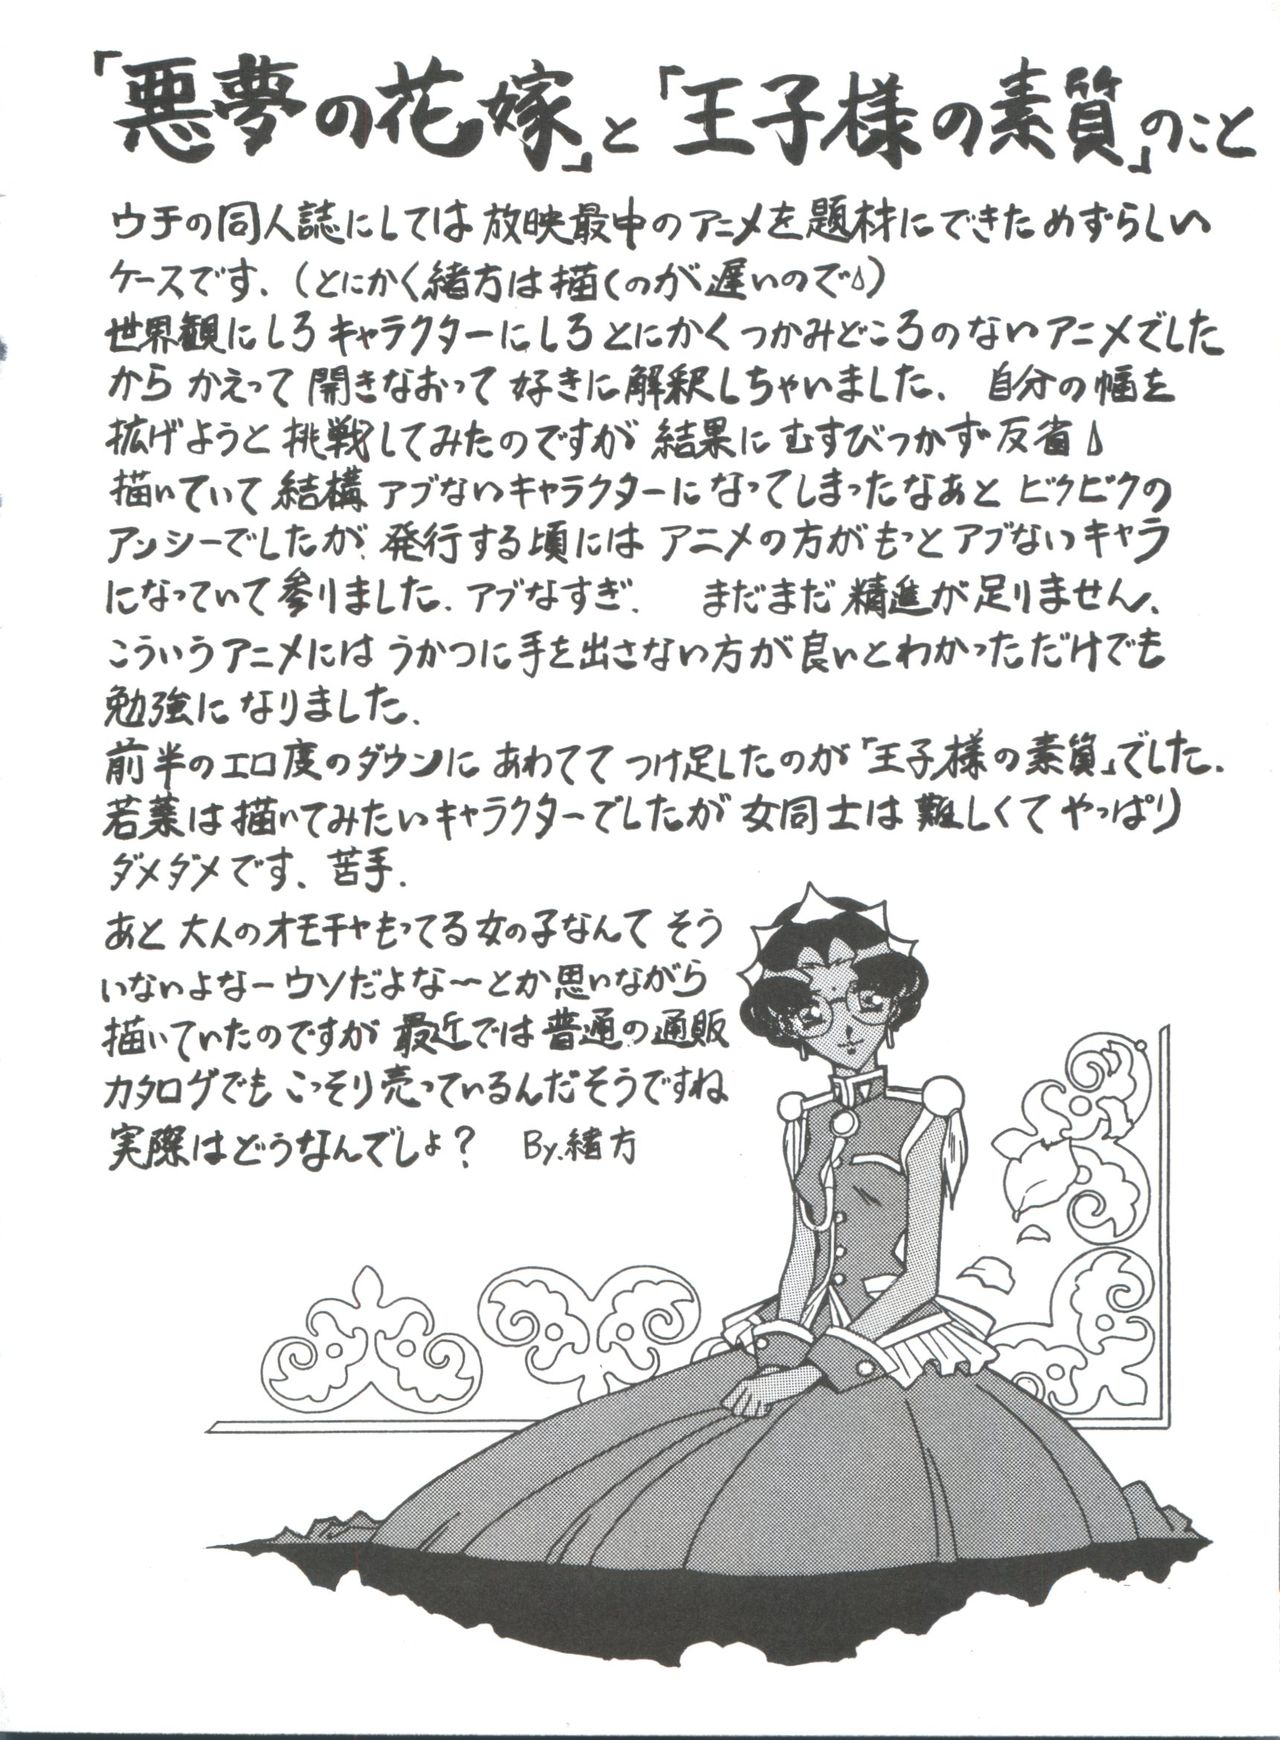 「悪夢の花嫁」と「王子様の素質」のこと
ウチの同人誌にしては放映最中のアニメを題材にできためずらしい
ケースです、(とにかく緒方は描くのが遅いので)
世界観にしろキャラクターにしろとにかくつかみどころのないアニメでした
からかえって開きなおって好きに解釈しちゃいました、自分の幅を
拡げようと挑戦してみたのですが結果にむすびつかず反省
描いていて結構アブないキャラクターになってしまったなぁとビクビクの
アンシーでしたが、発行する頃にはアニメの方がもっとアブないキャラ
になっていて参りました、アブなすぎ、まだまだ精進が足りません、
こういうアニメにはうかつに手を出さない方が良いとわかっただけでも
勉強になりました、
前半のエロ度のダウンにあわててつけ足したのが「王子様の素質」でした、
若葉は描いてみたいキャラクターでしたが女同士は難しくてやっぱり
ダメダメです、苦手、
あと大人のオモチャもってる女の子なんてそう
いないよなーウソだよな〜とか思いながら
描いていたのですが最近では普通の通販
カタログでもこっそり売っているんだそうですね
実際はどうなんでしょ?　By.緒方